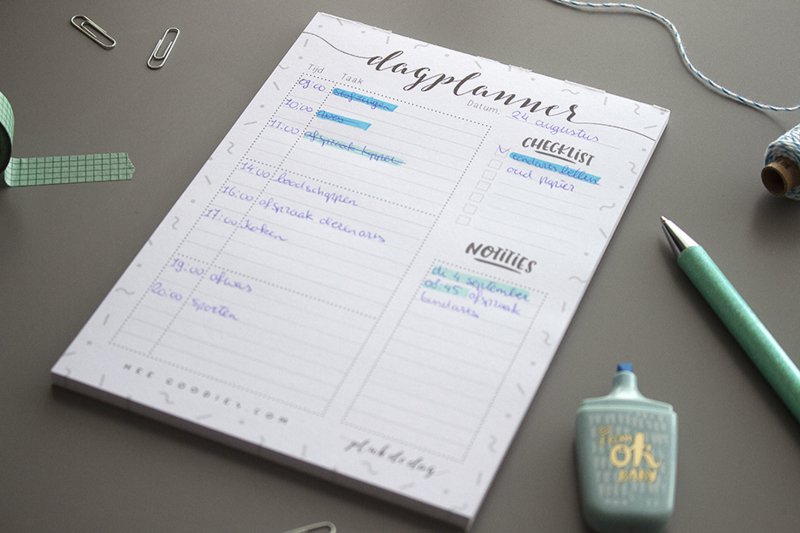 dagplanner
Datum: 24 augustus
Tijd Taak
09.00 stofzuigen
10.00
11.00 afspraak kapper
14.00 boodschappen
16.00 afspraak dierenarts
17.00 koken
19.00 afwas
20.00 sporten
CHECKLIST
tandarts bellen
oud papier
NOTITIES
di 4 september
08.45 afspraak
tandarts
MEE GOODIES.COM
plukdedag
ok
BABY